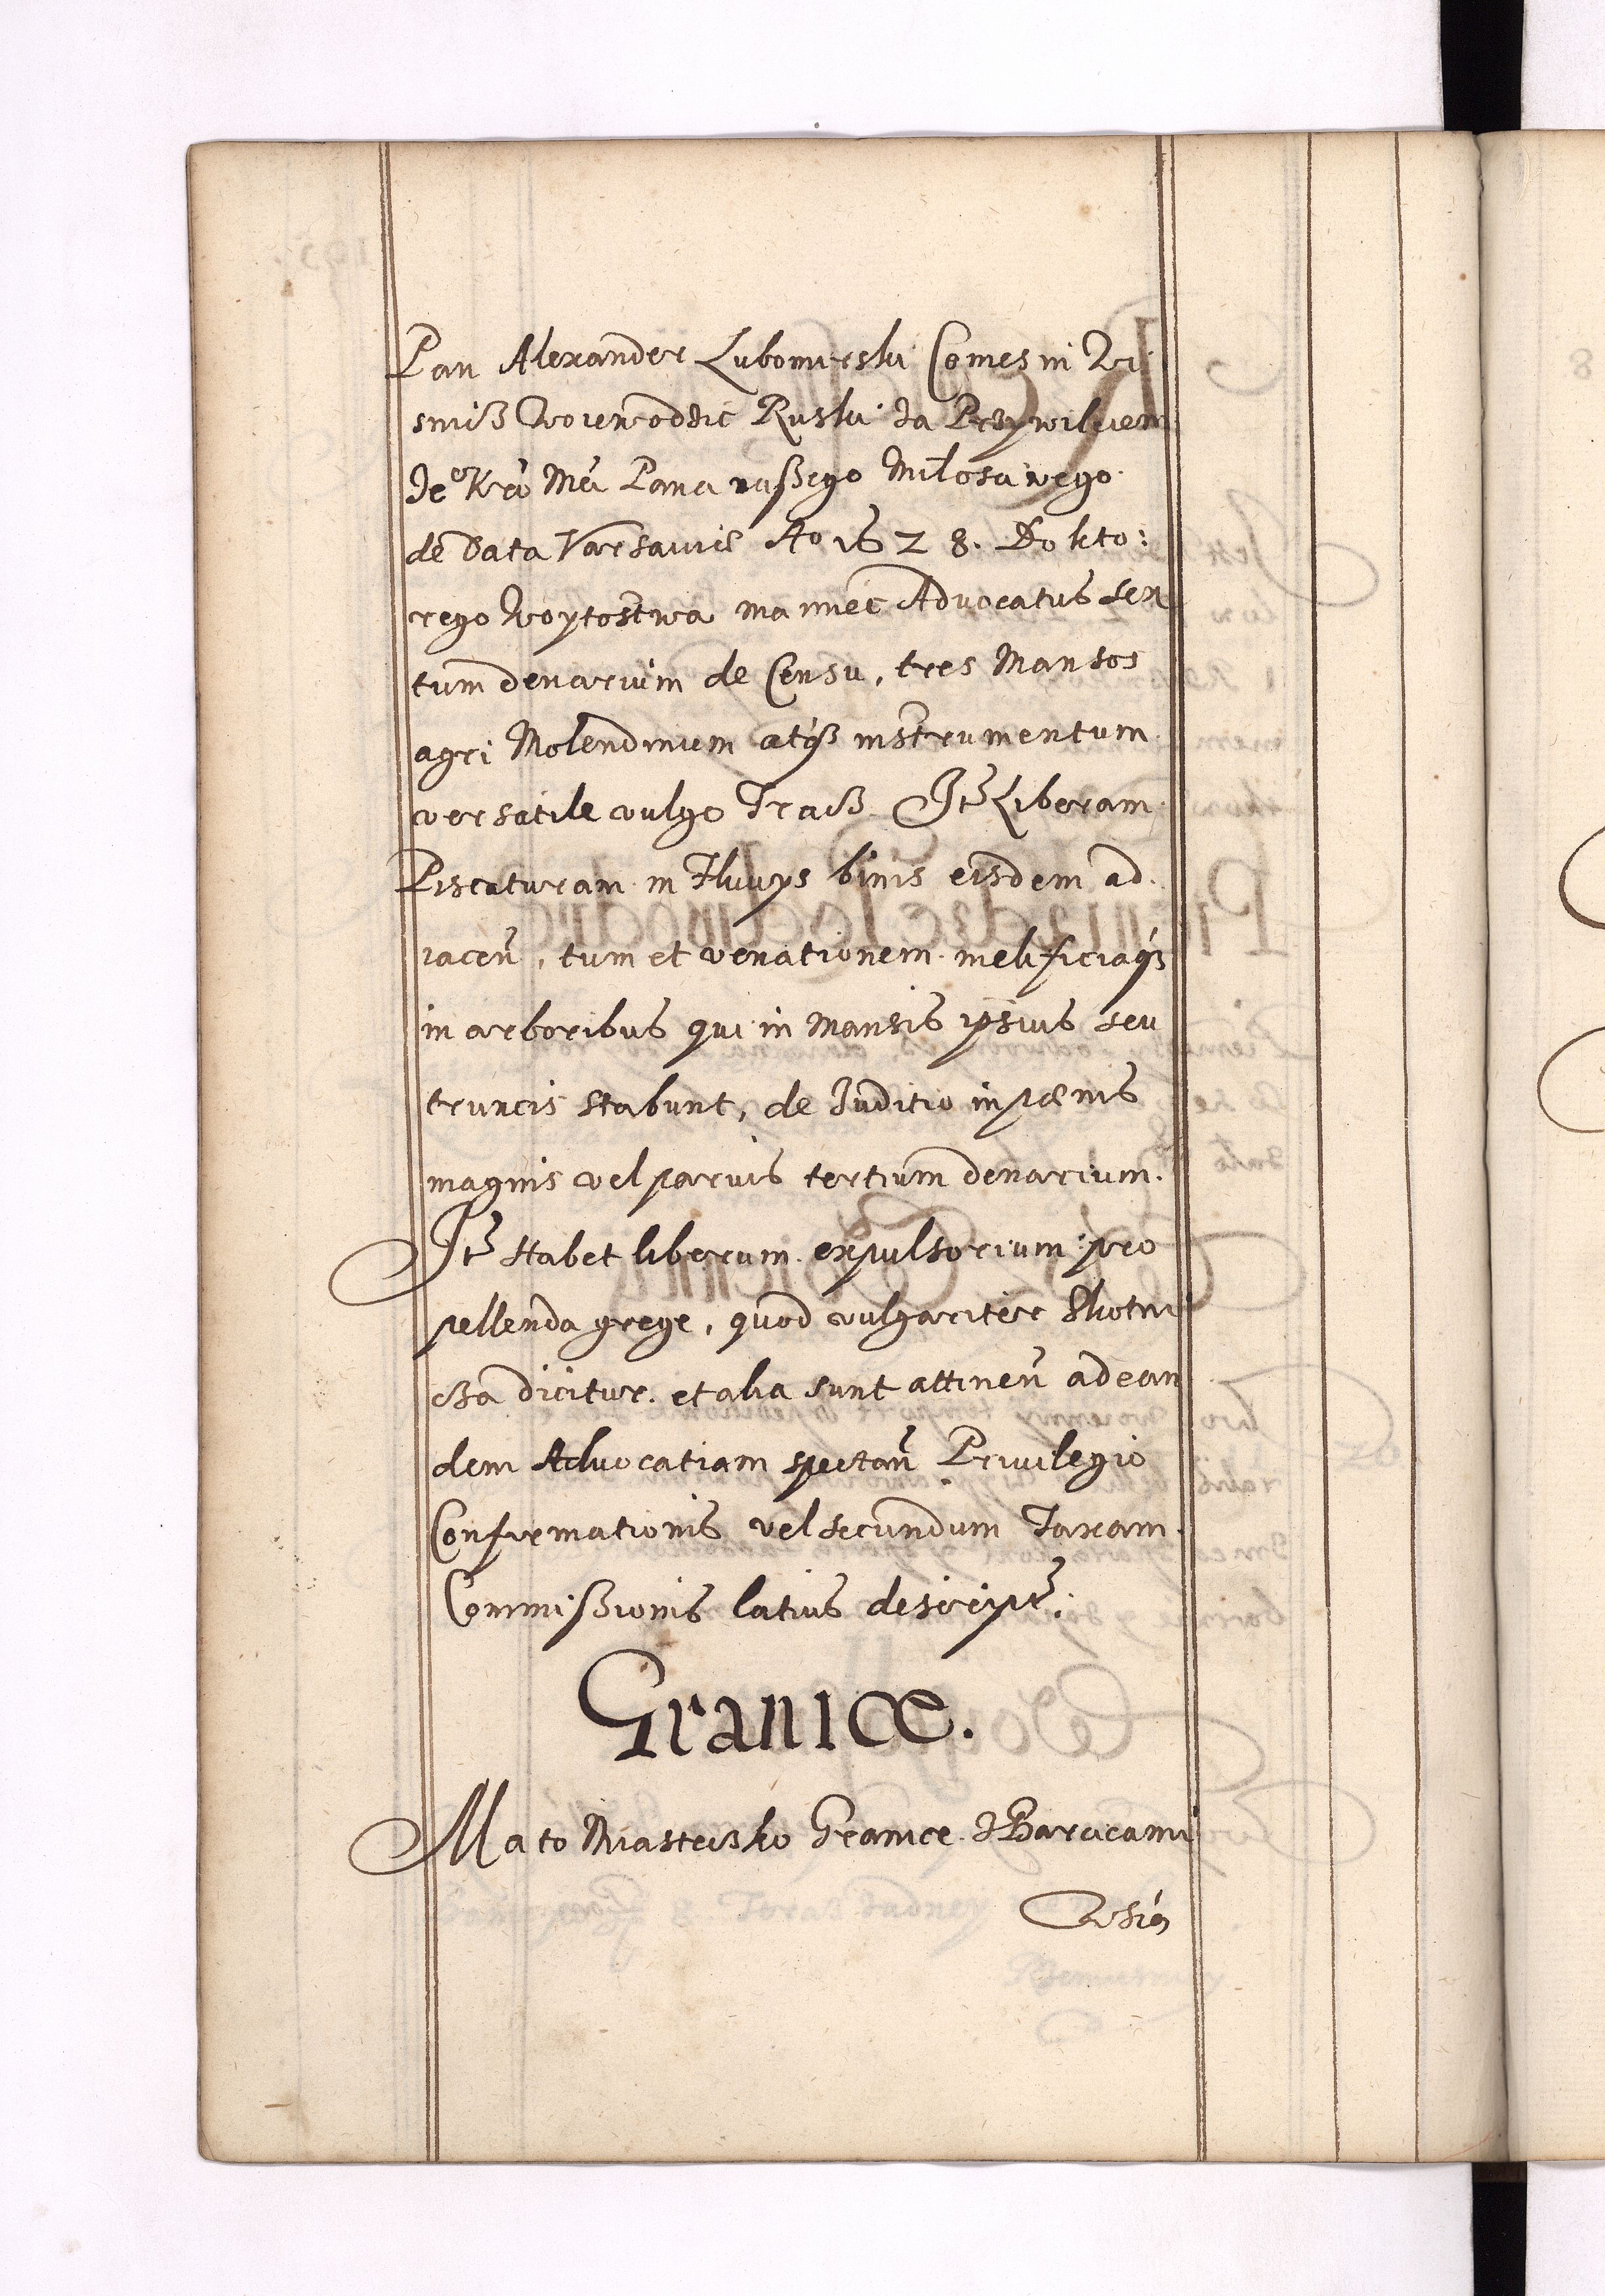 Pan Alexander Lubomirski Comes in Wi
sniß Woiewodzic Ruski za Przywileiem
Je⁰ Kr̀ Mći Pana naßego Miłosciwego
de Data Varsauiæ Ao 1628. Do kto:
rego Woytostwa ma mieć Advocatus sex
tum denarium de Censu, tres Mansos
agri Molendinum atq́ß instrumentum
versatile vulgo Tracz. Itɜ Liberam
Piscaturam in Fluuys binis eisdem ad
iacen̄, tum et venationem. melificiaq́ɜ
in arboribus qui in Mansis ipsius seu
truncis stabunt, de Juditio in pœnis
magnis vel paruis tertium denarium.
Itɜ Habet liberum expulsorium pro
pellenda grege, quod vulgariter Skotni
cza dicitur. et alia sunt attinen̄ ad ean
dem Advocatiam spectan̄ Priuilegio
Confirmationis vel secundum Taxam
Commißionis latius descriptɜ.
Granicæ.
Ma to Miasteczko Granice. Z Barcicami
Wsią